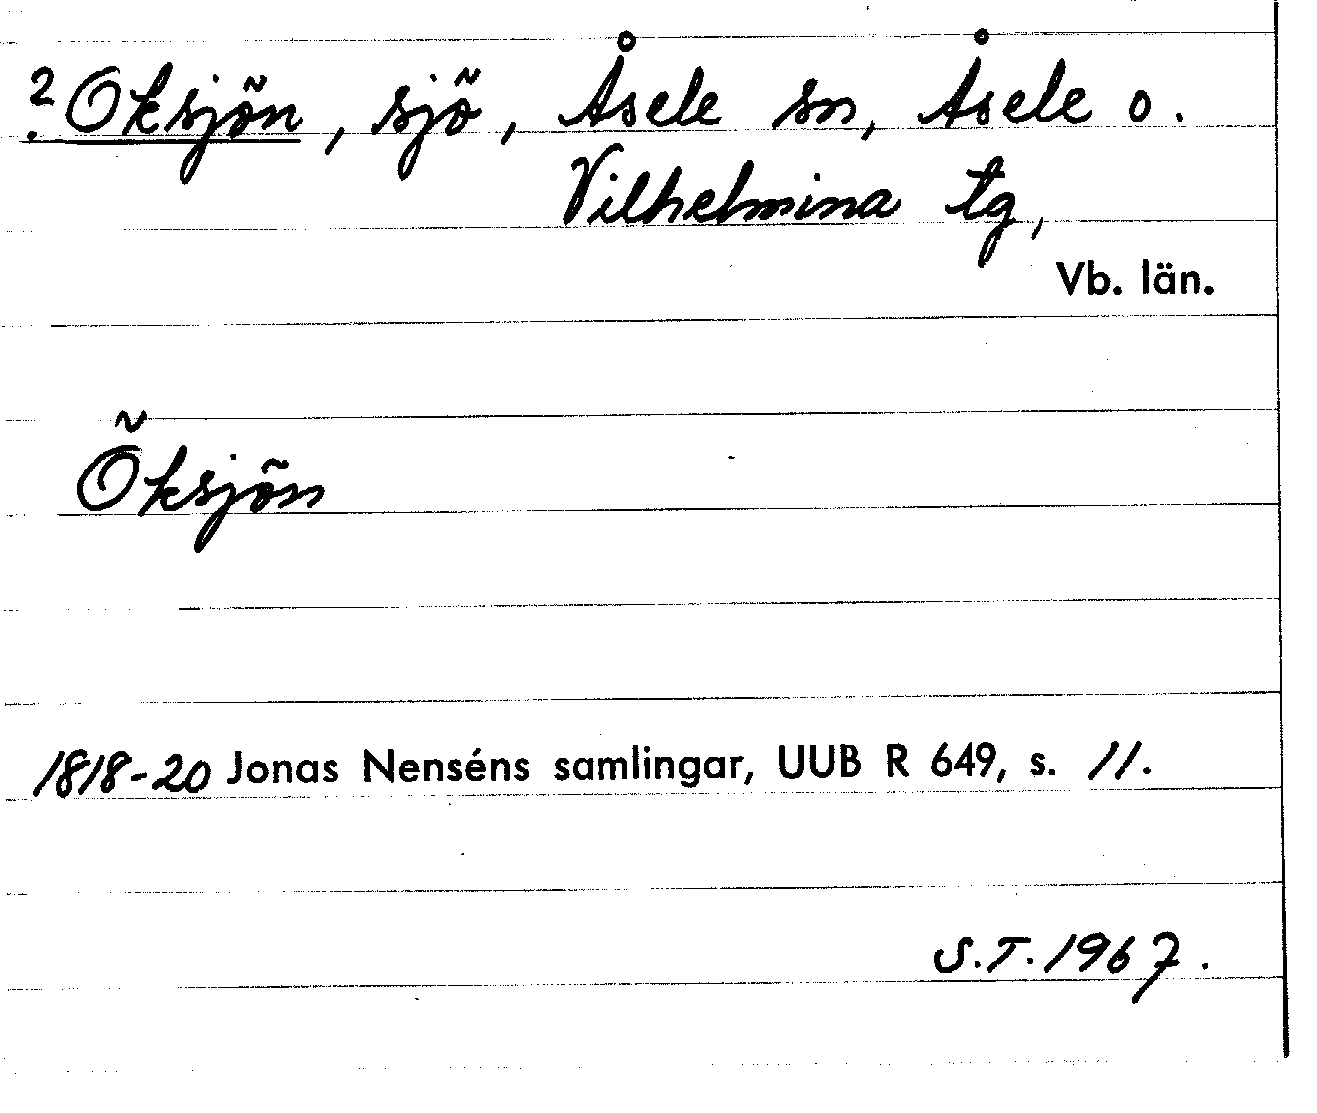 ? Oksjön, sjö, Åsele sn, Åsele o.
Vilhelmina tg,
Vb. län.
Öksjön
1818-20 Jonas Nenséns samlingar, UUB R 649, s. 11.
S.T. 1967.